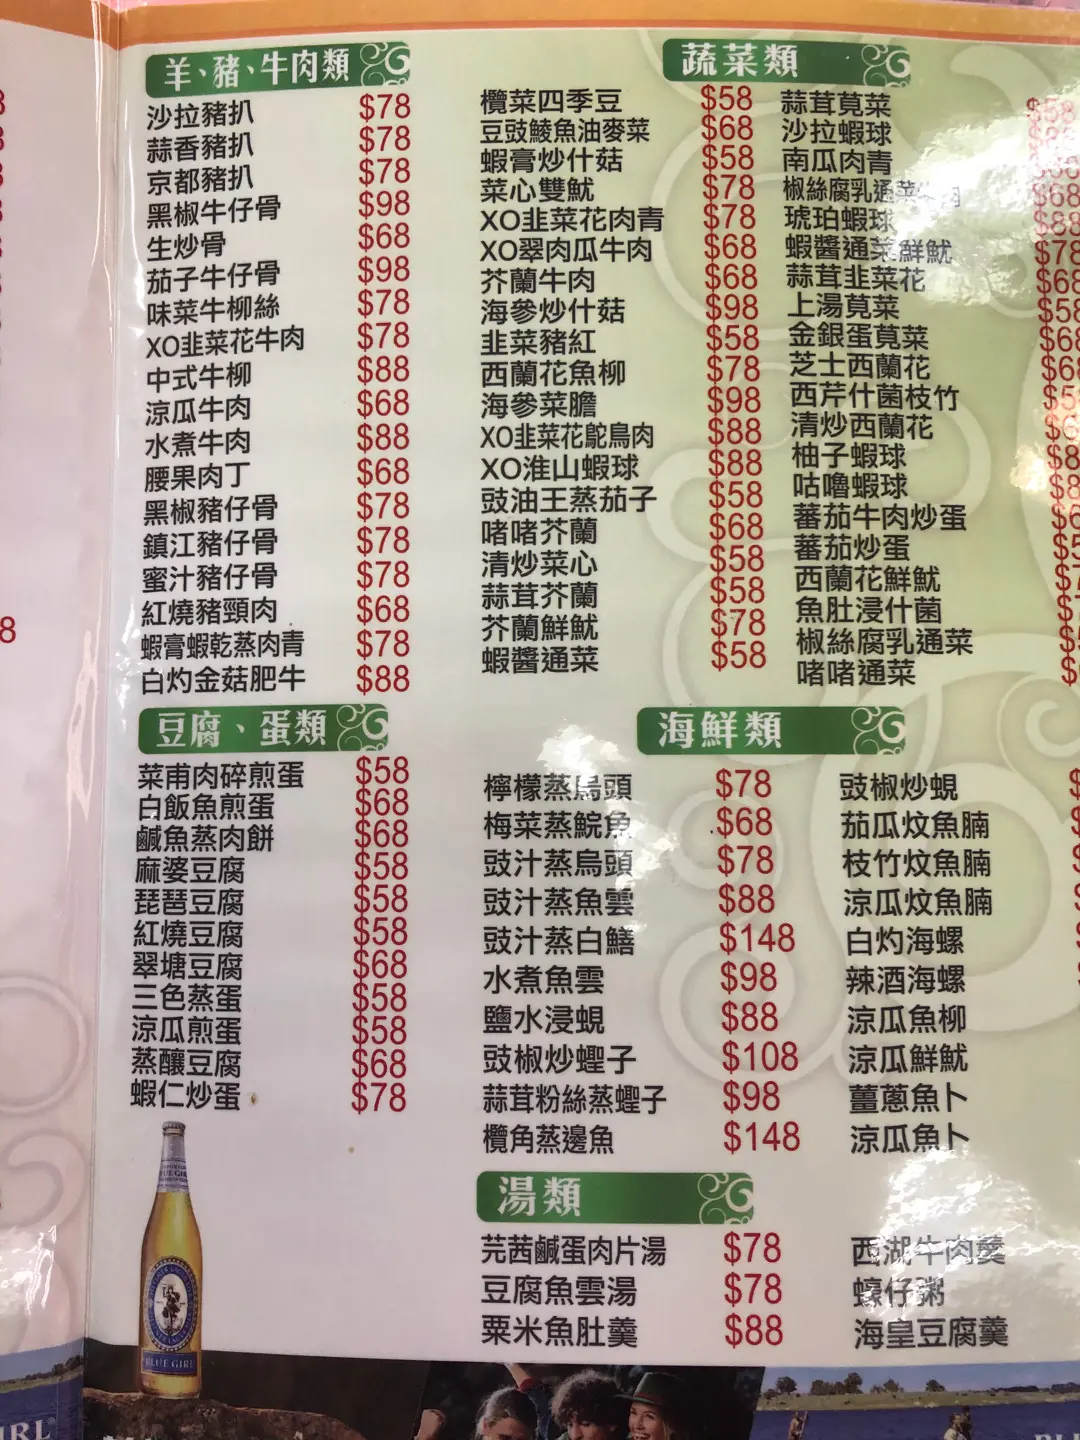 羊、豬、牛肉類
沙拉豬扒 $78
蒜香豬扒 $78
京都豬扒 $78
黑椒牛仔骨 $98
生炒骨 $68
茄子牛仔骨 $98
味菜牛柳絲 $78
XO韭菜花牛肉 $78
中式牛柳 $88
涼瓜牛肉 $68
水煮牛肉 $88
腰果肉丁 $68
黑椒豬仔骨 $78
鎮江豬仔骨 $78
蜜汁豬仔骨 $78
紅燒豬頸肉 $68
蝦膏蝦乾蒸肉青 $78
白灼金菇肥牛 $88
豆腐、蛋類
菜甫肉碎煎蛋 $58
白飯魚煎蛋 $68
鹹魚蒸肉餅 $68
麻婆豆腐 $58
琵琶豆腐 $58
紅燒豆腐 $58
翠塘豆腐 $68
三色蒸蛋 $58
涼瓜煎蛋 $58
蒸釀豆腐 $68
蝦仁炒蛋 $78
BLUE GIRL
蔬菜類
欖菜四季豆 $58
豆豉鯪魚油麥菜 $68
蝦膏炒什菇 $58
菜心雙魷 $78
XO韭菜花肉青 $78
XO翠肉瓜牛肉 $68
芥蘭牛肉 $68
海參炒什菇 $98
韭菜豬紅 $58
西蘭花魚柳 $78
海參菜膽 $98
XO韭菜花鴕鳥肉 $88
XO淮山蝦球 $88
豉油王蒸茄子 $58
啫啫芥蘭 $68
清炒菜心 $58
蒜茸芥蘭 $58
芥蘭鮮魷 $78
蝦醬通菜 $58
蒜茸莧菜 $58
沙拉蝦球
南瓜肉青
椒絲腐乳通菜牛肉 $68
琥珀蝦球 $88
蝦醬通菜鮮魷 $78
蒜茸韭菜花 $68
上湯莧菜 $58
金銀蛋莧菜 $68
芝士西蘭花
西芹什菌枝竹
清炒西蘭花
柚子蝦球
咕嚕蝦球
蕃茄牛肉炒蛋
蕃茄炒蛋
西蘭花鮮魷
魚肚浸什菌
椒絲腐乳通菜
啫啫通菜
海鮮類
檸檬蒸烏頭 $78
梅菜蒸鯇魚 $68
豉汁蒸烏頭 $78
豉汁蒸魚雲 $88
豉汁蒸白鱔 $148
水煮魚雲 $98
鹽水浸蜆 $88
豉椒炒蟶子 $108
蒜茸粉絲蒸蟶子 $98
欖角蒸邊魚 $148
豉椒炒蜆
茄瓜炆魚腩
枝竹炆魚腩
涼瓜炆魚腩
白灼海螺
辣酒海螺
涼瓜魚柳
涼瓜鮮魷
薑蔥魚卜
涼瓜魚卜
湯類
芫茜鹹蛋肉片湯 $78
豆腐魚雲湯 $78
粟米魚肚羹 $88
西湖牛肉羹
蠔仔粥
海皇豆腐羹